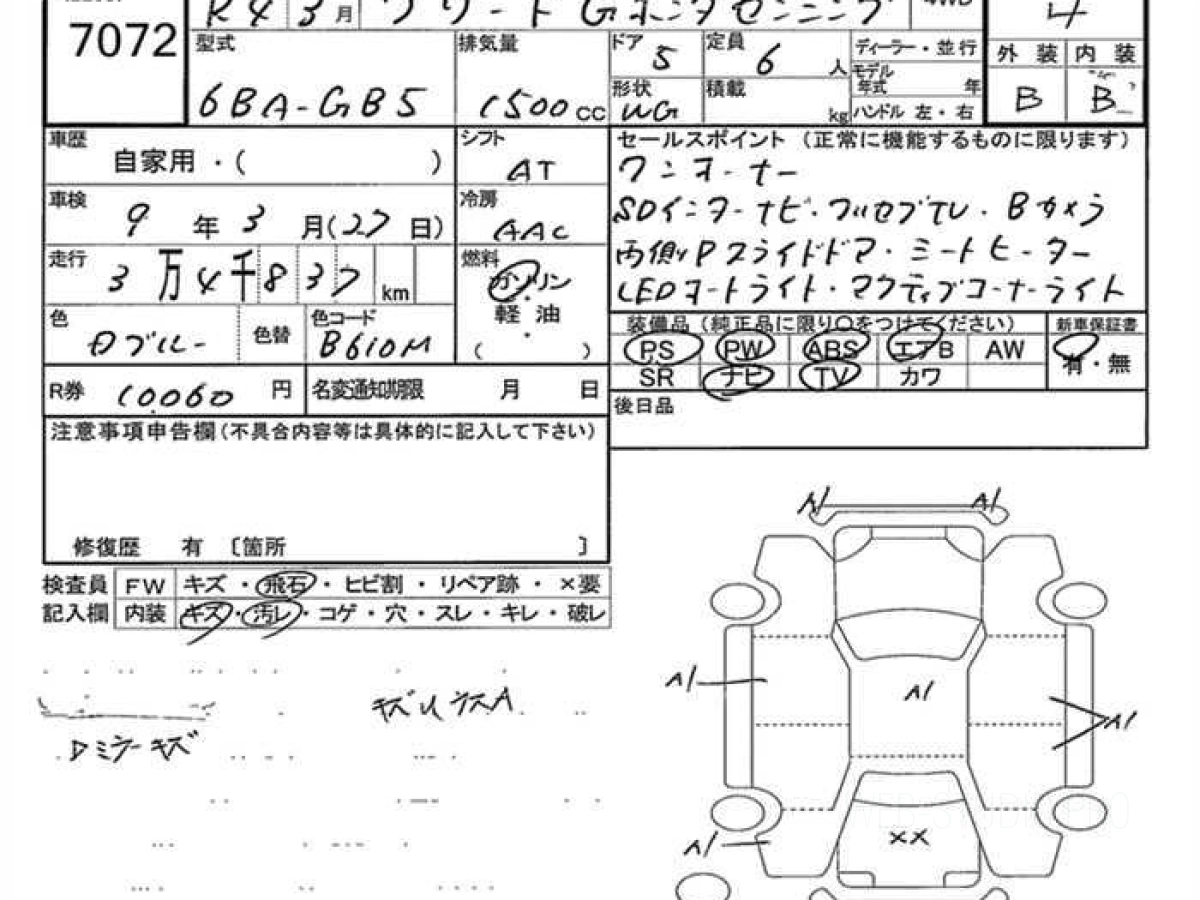 R4 3月 フリード Gホンダセンシング 4WD
7072
4
型式 6BA-GB5
排気量 1500cc
ドア 5
定員 6人
ディーラー・並行
モデル年式 年
形状 WG
積載 kg
ハンドル 左・右
外装 内装
B B
車歴 自家用・( )
シフト AT
セールスポイント (正常に機能するものに限ります)
ワンオーナー
車検 9年3月(27日)
冷房 AAC
SDインターナビ・フルセグTV・Bカメラ
両側Pスライドドア・シートヒーター
LEDオートライト・アクティブコーナーライト
走行 3万4千837km
燃料 ガソリン
軽・油
( )
色 Dブルー
色替
色コード B610M
装備品 (純正品に限り○をつけてください)
新車保証書
PS PW ABS エアB AW
有・無
SR ナビ TV カワ
R券 10060円
名変通知期限 月 日
後日品
注意事項申告欄(不具合内容等は具体的に記入して下さい)
修復歴 有 〔箇所 〕
検査員 FW キズ・飛石・ヒビ割・リペア跡・×要
記入欄 内装 キズ・汚レ・コゲ・穴・スレ・キレ・破レ
A1 A1
A1 A1 A1
キズU ラスA
Dミラーキズ
A1 XX